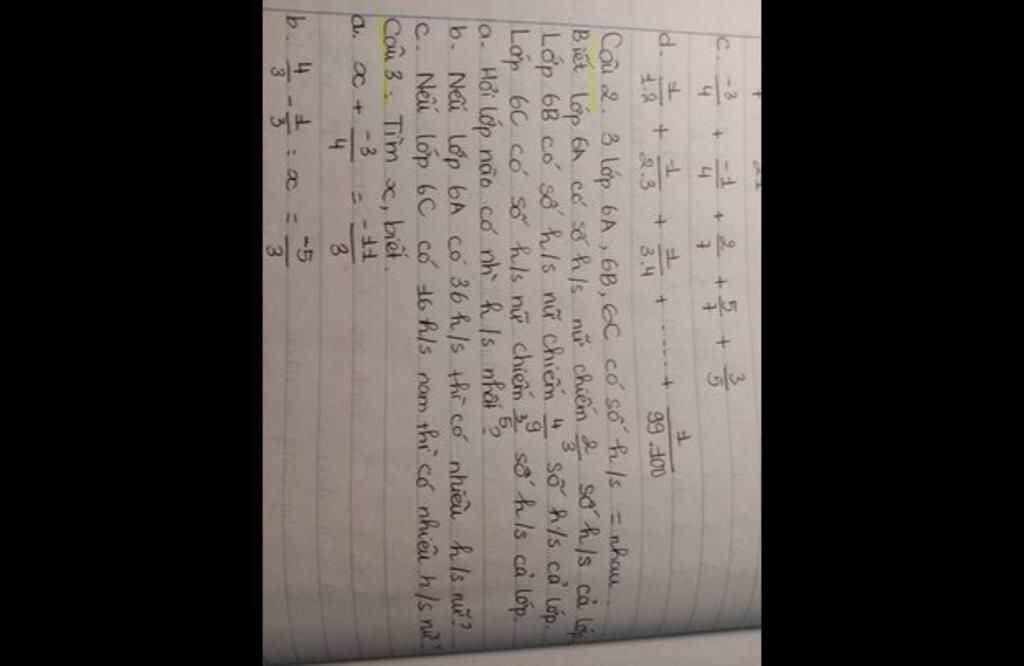 c. \frac{-3}{4} + \frac{-1}{4} + \frac{2}{7} + \frac{5}{7} + \frac{3}{5}
d. \frac{1}{1.2} + \frac{1}{2.3} + \frac{1}{3.4} + ..... + \frac{1}{99.100}
Câu 2. 3 lớp 6A, 6B, 6C có số h/s = nhau.
Biết lớp 6A có số h/s nữ chiếm \frac{2}{3} số h/s cả lớp
Lớp 6B có số h/s nữ chiếm \frac{4}{9} số h/s cả lớp.
Lớp 6C có số h/s nữ chiếm số h/s cả lớp.
a. Hỏi lớp nào có nh` h/s nhất?
b. Nếu lớp 6A có 36 h/s thì có nhiêu h/s nữ?
c. Nếu lớp 6C có 16 h/s nam thì có nhiêu h/s nữ
Câu 3: Tìm x, biết.
a. x + \frac{-3}{4} = \frac{-11}{3}
b. \frac{4}{3} - \frac{1}{3} : x = \frac{-5}{3}